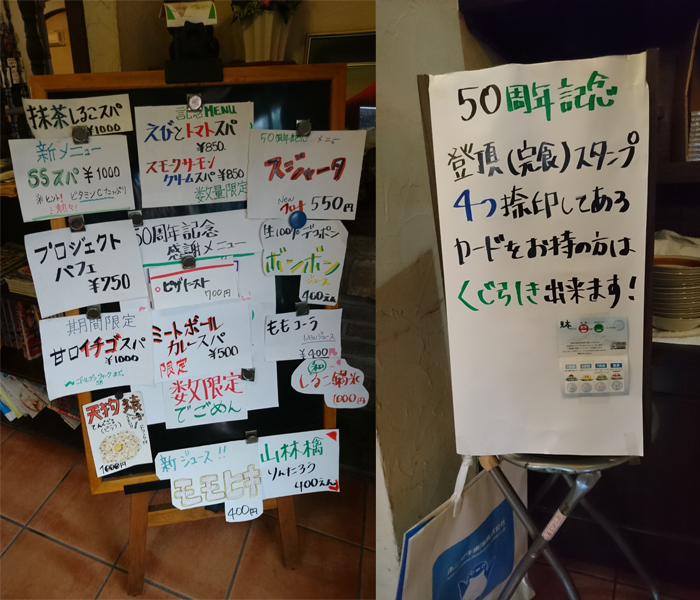 抹茶しるこスパ
¥1000
記念MENU
えびとトマトスパ
¥850
スモークサーモン
クリームスパ ¥850
数量限定
50周年記念 メニュー
スジャータ
New
550円
新メニュー
SSスパ ¥1000
プロジェクト
パフェ
¥750
50周年記念
感謝メニュー
ピザトースト
700円
生100%デコポン
ボンボン
ジュース
400えん
期間限定
甘口イチゴスパ
¥1000
ミートボール
カレースパ
¥500
限定
数数限定
でごめん
ももコーラ
¥400
しるこ氷
1000円
天狗
1000円
新ジュース!!
モモヒキ
400円
山林檎
りんたろう
400えん
50周年記念
登頂(完食)スタンプ
4つ捺印してある
カードをお持の方は
くじ引き出来ます!
見本